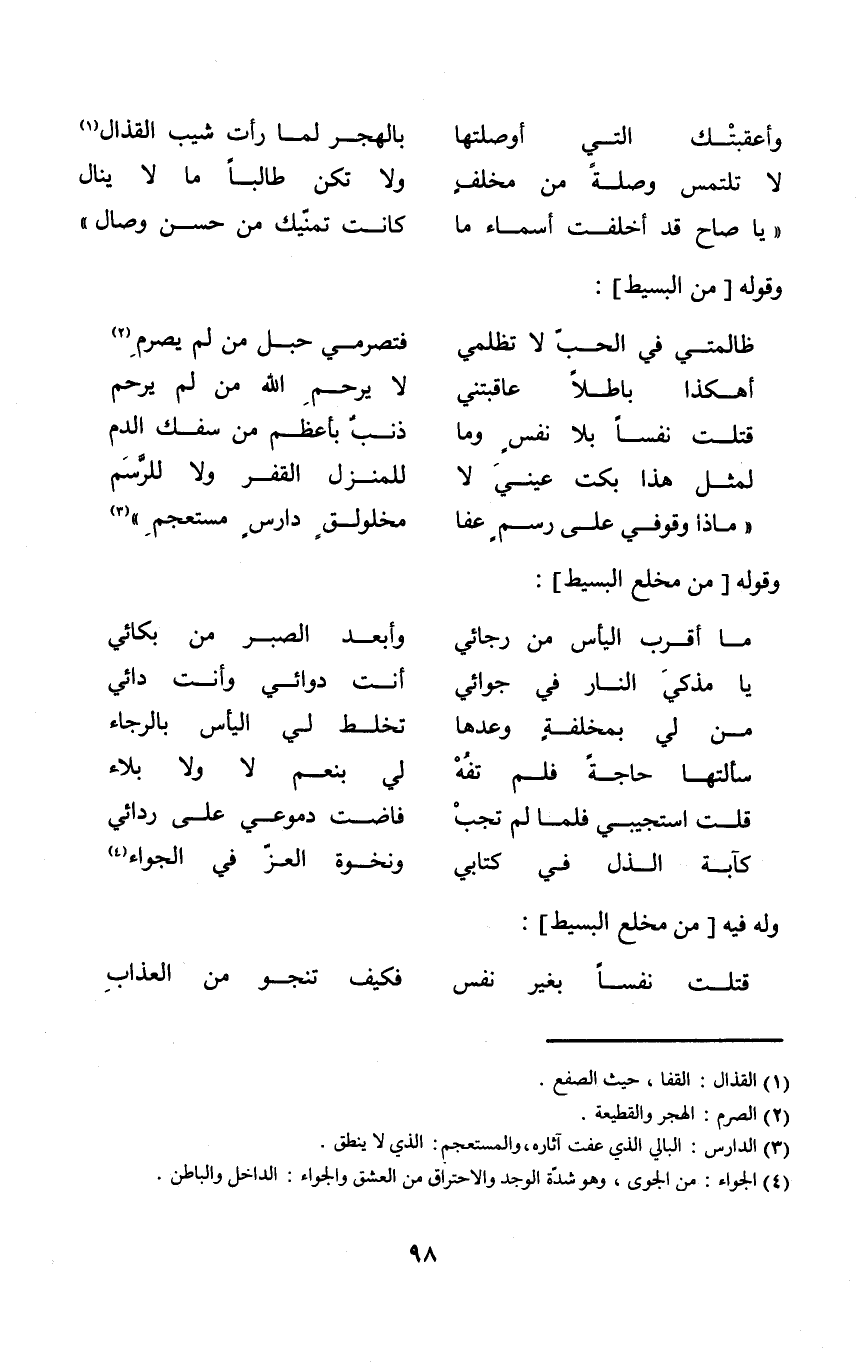 وأعقبتْك التي أوصلتها بالهجر لما رأت شيب القذال(١)
لا تلتمس وصلةً من مخلفٍ ولا تكن طالباً ما لا ينال
« يا صاح قد أخلفت أسماء ما كانت تمنّيك من حسن وصال »
وقوله [ من البسيط ] :
ظالمتي في الحبّ لا تظلمي فتصرمي حبل من لم يصرمِ(٢)
أهكذا باطلاً عاقبتني لا يرحمِ الله من لم يرحم
قتلت نفساً بلا نفسٍ وما ذنبٌ بأعظم من سفك الدم
لمثل هذا بكت عينيَ لا للمنزل القفر ولا للرَّسَم
« ماذا وقوفي على رسمٍ عفا مخلولقٍ دارسٍ مستعجمِ »(٣)
وقوله [ من مخلع البسيط ] :
ما أقرب اليأس من رجائي وأبعد الصبر من بكائي
يا مذكيَ النار في جوائي أنت دوائي وأنت دائي
من لي بمخلفةٍ وعدها تخلط لي اليأس بالرجاء
سألتها حاجةً فلم تفُهْ لي بنعم لا ولا بلاء
قلت استجيبي فلما لم تجبْ فاضت دموعي على ردائي
كآبة الذل في كتابي ونخوة العزّ في الجواء(٤)
وله فيه [ من مخلع البسيط ] :
قتلت نفساً بغير نفس فكيف تنجو من العذابِ
(١) القذال : القفا ، حيث الصفع .
(٢) الصرم : الهجر والقطيعة .
(٣) الدارس : البالي الذي عفت آثاره، والمستعجم : الذي لا ينطق .
(٤) الجواء : من الجوى ، وهو شدّة الوجد والاحتراق من العشق والجواء : الداخل والباطن .
٩٨